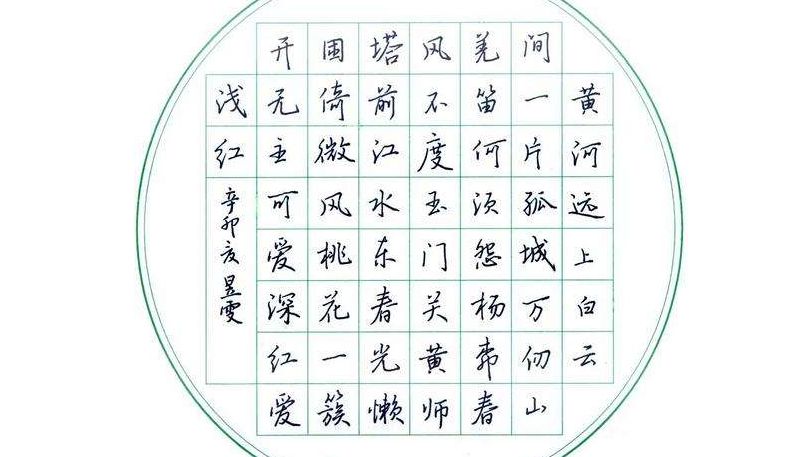 黄河远上白云
间一片孤城万仞山
羌笛何须怨杨柳春
风不度玉门关黄师
塔前江水东春光懒
困倚微风桃花一簇
开无主可爱深红爱
浅红
辛卯昱雯